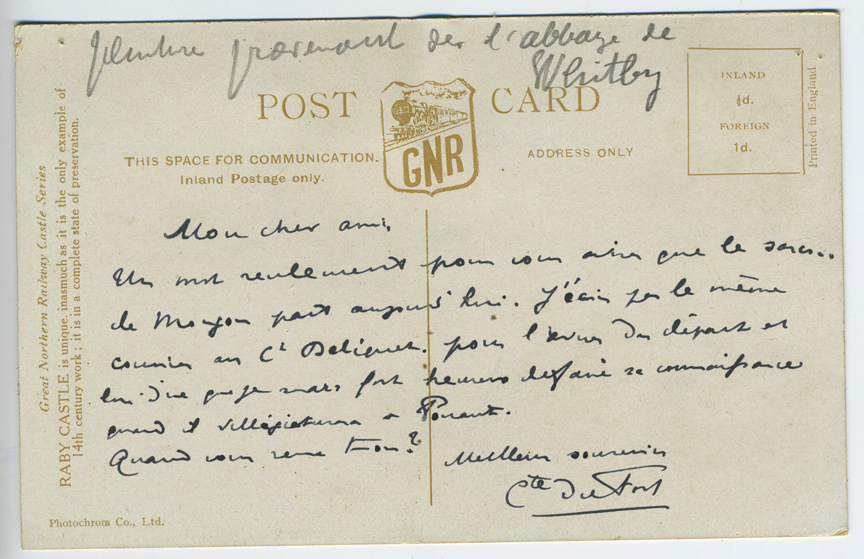 peinture provenant de l'abbaye de
Whitby
POST CARD
GNR
THIS SPACE FOR COMMUNICATION.
Inland Postage only.
ADDRESS ONLY
INLAND
½d.
FOREIGN
1d.
Printed in England
Great Northern Railway Castle Series
RABY CASTLE is unique, inasmuch as it is the only example of
14th century work; it is in a complete state of preservation.
Mon cher ami,
Un mot seulement pour vous aviser que le
de part aujourd'hui. J'écris par le même
courrier au Ct pour l'aviser du départ et
lui dire que je serais fort heureux de faire sa connaissance
quand il villégiaturera à
Quand vous
Meilleurs souvenirs
Cte
Photochrom Co., Ltd.